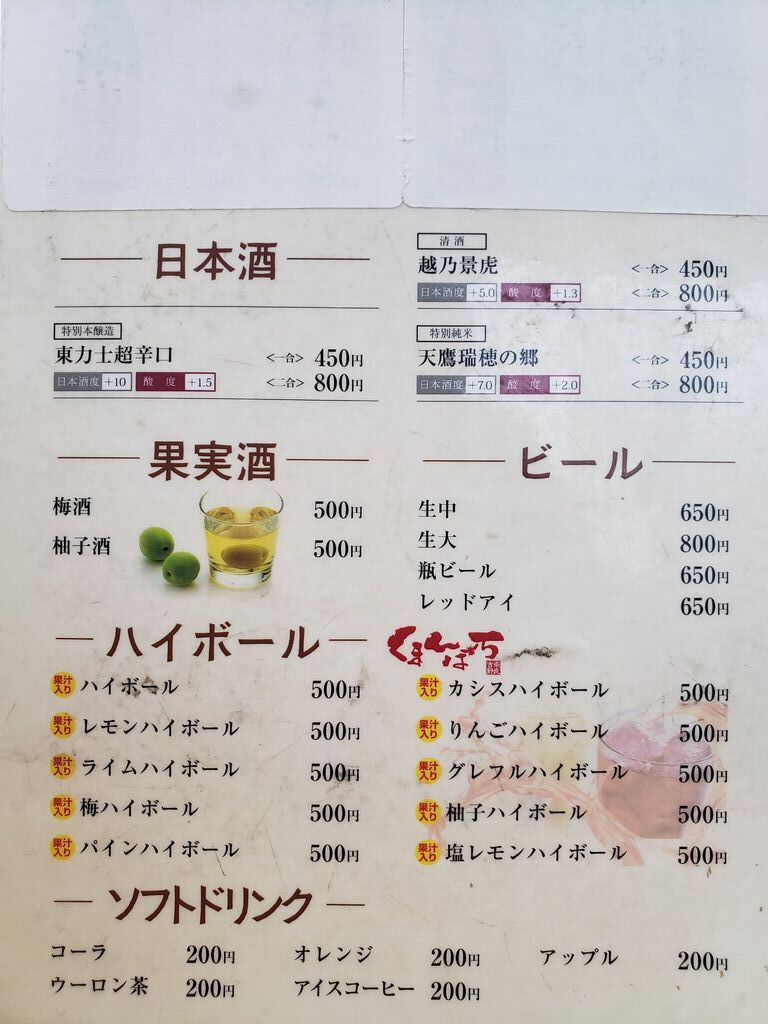 日本酒
特別本醸造
東力士超辛口 <一合> 450円
日本酒度 +10 酸度 +1.5 <二合> 800円
清酒
越乃景虎 <一合> 450円
日本酒度 +5.0 酸度 +1.3 <二合> 800円
特別純米
天鷹瑞穂の郷 <一合> 450円
日本酒度 +7.0 酸度 +2.0 <二合> 800円
果実酒
梅酒 500円
柚子酒 500円
ビール
生中 650円
生大 800円
瓶ビール 650円
レッドアイ 650円
ハイボール
くまんば
果汁入り ハイボール 500円
果汁入り レモンハイボール 500円
果汁入り ライムハイボール 500円
果汁入り 梅ハイボール 500円
果汁入り パインハイボール 500円
果汁入り カシスハイボール 500円
果汁入り りんごハイボール 500円
果汁入り グレフルハイボール 500円
果汁入り 柚子ハイボール 500円
果汁入り 塩レモンハイボール 500円
ソフトドリンク
コーラ 200円 オレンジ 200円 アップル 200円
ウーロン茶 200円 アイスコーヒー 200円